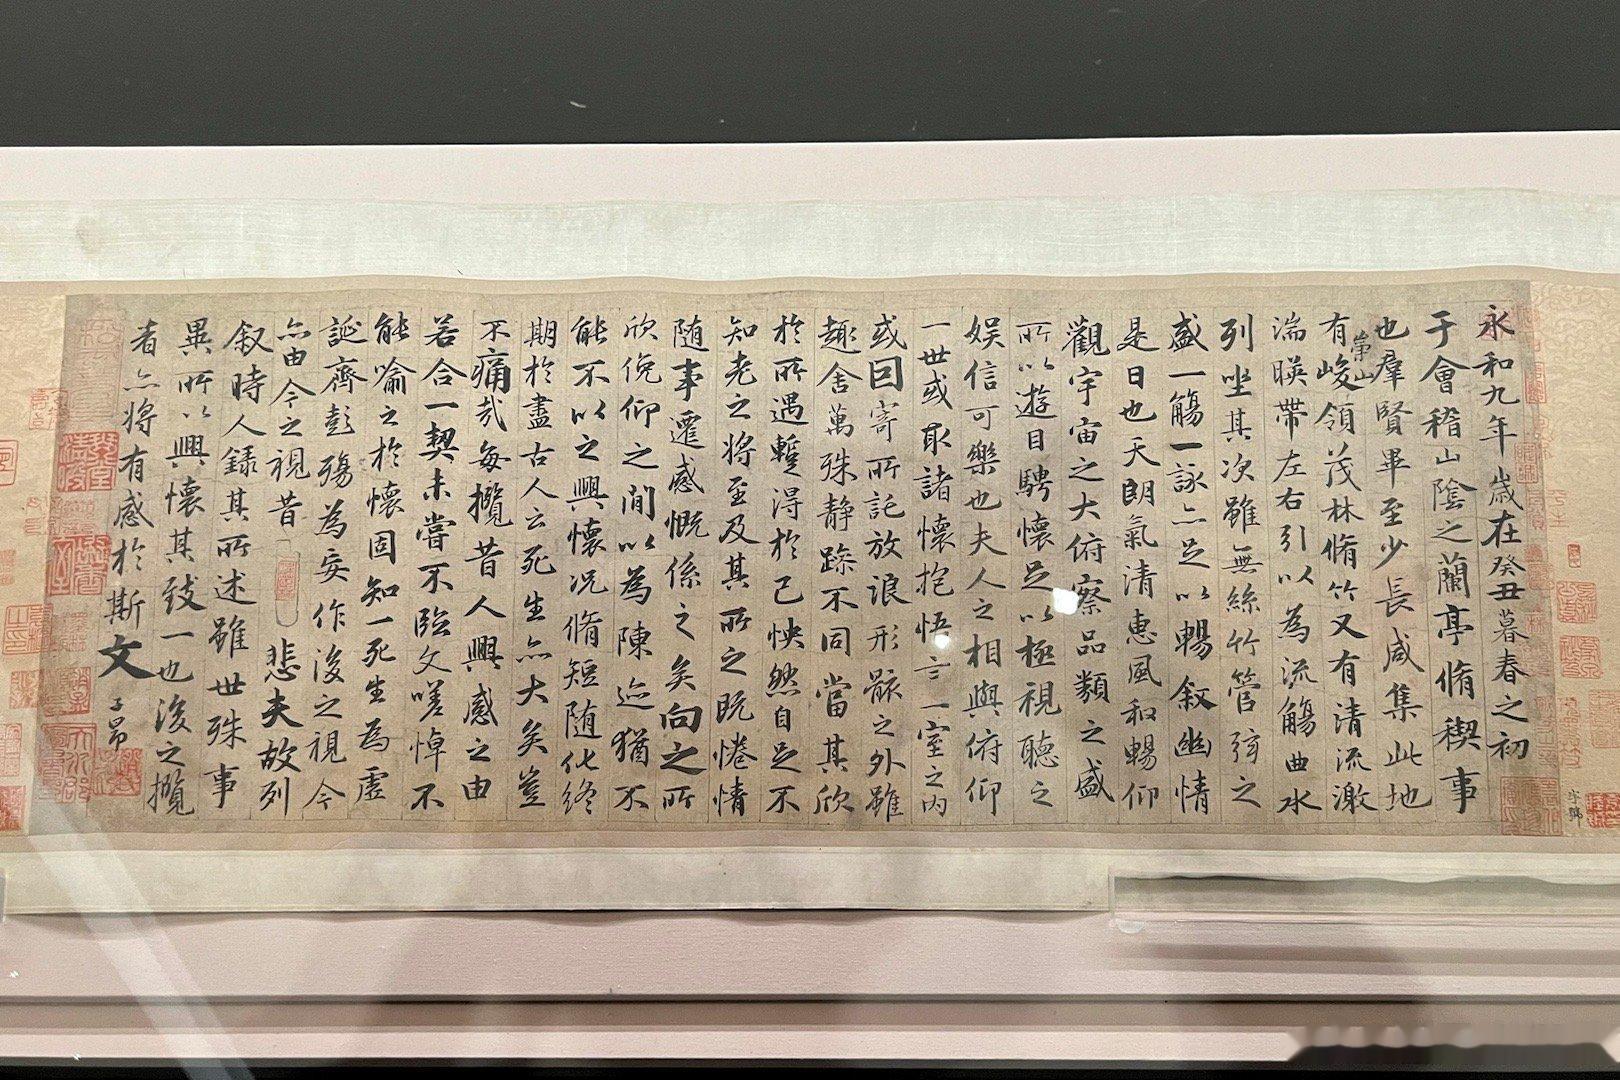 永和九年歲在癸丑暮春之初
于會稽山陰之蘭亭脩禊事
也羣賢畢至少長咸集此地
有崇山峻領茂林脩竹又有清流激
湍暎帶左右引以為流觴曲水
列坐其次雖無絲竹管弦之
盛一觴一詠亦足以暢叙幽情
是日也天朗氣清惠風和暢仰
觀宇宙之大俯察品類之盛
所以遊目騁懷足以極視聽之
娛信可樂也夫人之相與俯仰
一世或取諸懷抱悟言一室之內
或因寄所託放浪形骸之外雖
趣舍萬殊静躁不同當其欣
於所遇蹔得於己怏然自足不
知老之將至及其所之既惓情
隨事遷感慨係之矣向之所
欣俛仰之閒以為陳迹猶不
能不以之興懷况脩短隨化終
期於盡古人云死生亦大矣豈
不痛哉每攬昔人興感之由
若合一契未嘗不臨文嗟悼不
能喻之於懷固知一死生為虛
誕齊彭殤為妄作後之視今
亦由今之視昔悲夫故列
叙時人錄其所述雖世殊事
異所以興懷其致一也後之攬
者亦將有感於斯文
子昂